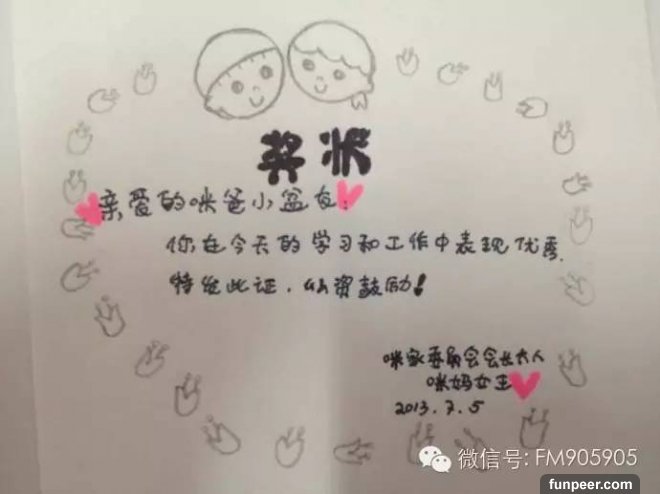 奖状
亲爱的咪爸小盆友:
你在今天的学习和工作中表现优秀.
特发此证,以资鼓励!
咪家委员会会长大人
咪妈女王
2013.7.5
微信号: FM905905
funpeer.com